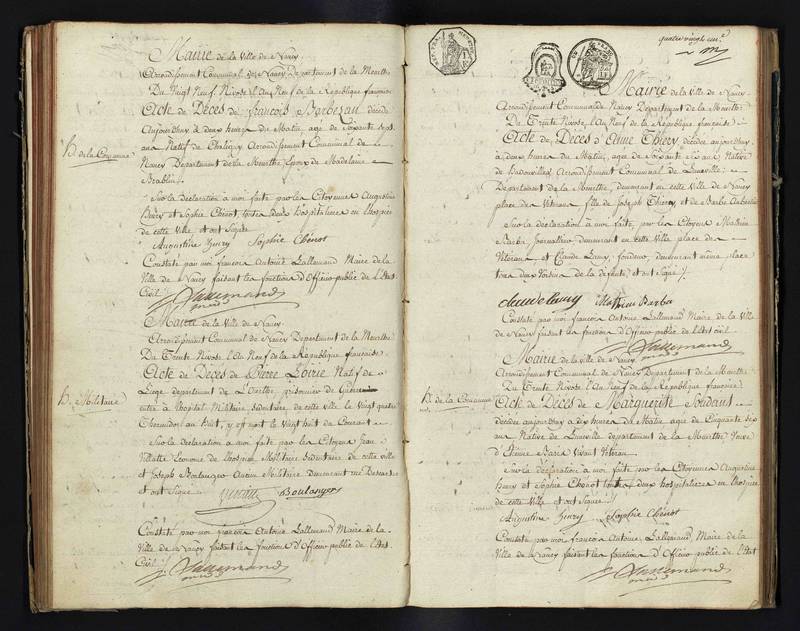 Mairie de la Ville de Nancy
Arrondissement Communal de Nancy Département de la Meurthe
Du Vingt Neuf Nivose l'An Neuf de la République française
Acte de Décès de françois Berbezau décédé
Aujourdhuy à deux heures du Matin, agé de Soixante sept
ans Natif de Chaligny Arrondissement Communal de
Nancy Département de la Meurthe, Epoux de Madelaine
H. de la Commune
Sur la déclaration à moi faite par les Citoyennes Augustine
henry et Sophie Chénot toutes deux hospitalieres en l'hospice
de cette ville, et ont Signé
Augustine henry Sophie Chénot
Constaté par moi françois Antoine Lallemand Maire de la
Ville de Nancy faisant les fonctions d'Officier public de l'Etat
Civil
Lallemand
Mairie de la Ville de Nancy
Arrondissement Communal de Nancy Département de la Meurthe
Du Trente Nivose l'An Neuf de la République française
Acte de Décès de Pierre Loirie Natif de
Liege département de l'Ourthe, prisonnier de Guerre
entré à l'hôpital Militaire, Sédentaire de cette ville le Vingt quatre
Thermidor an huit, y est mort le Vingt huit du Courant
H. Militaire
Sur la déclaration à moi faite par les Citoyens Jean
Villatte Econome de l'hospice Militaire Sédentaire de cette ville
et Joseph Boulanger Ancien Militaire demeurant rue
et ont Signé
Boulanger
Constaté par moi françois Antoine Lallemand Maire de la
Ville de Nancy faisant les fonctions d'Officier public de l'Etat
Civil
Lallemand
quatre vingt
Mairie de la Ville de Nancy
Arrondissement Communal de Nancy Département de la Meurthe
Du Trente Nivose, l'An Neuf de la République française
Acte de Décès d'Anne Thiery, décédée aujourdhuy
à deux heures du Matin, agée de Soixante ans Native
de Badonviller Arrondissement Communal de Lunéville
Département de la Meurthe, demeurant en cette Ville de Nancy
place de fille de Joseph Thiery, et de Barbe
Sur la déclaration à moi faite, par les Citoyens Mathieu
Barba journalier demeurant en cette Ville place de
et Claude Laury, demeurant même place
tous deux Voisins de la défunte, et ont Signé
Claude Laury Mathieu Barba
Constaté par moi françois Antoine Lallemand Maire de la Ville
de Nancy faisant les fonctions d'Officier public de l'Etat Civil
Lallemand
Mairie de la ville de Nancy
Arrondissement Communal de Nancy Département de la Meurthe
Du Trente Nivose l'An Neuf de la République française
H. de la Commune
Acte de Décès de Marguerite Soudans
décédée aujourdhuy à dix heures du Matin agée de Cinquante six
ans Native de Lunéville département de la Meurthe Veuve
d'Etienne Vivant Vétéran
Sur la déclaration à moi faite par les Citoyennes Augustine
henry et Sophie Chénot toutes deux hospitalieres en l'hospice
de cette Ville et ont Signé
Augustine henry Sophie Chénot
Constaté par moi françois Antoine Lallemand Maire de la
Ville de Nancy faisant les fonctions d'Officier public de l'Etat
Lallemand